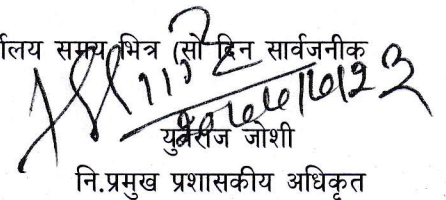 र्यालय समय भित्र (सो दिन सार्वजनीक
युवराज जोशी
नि.प्रमुख प्रशासकीय अधिकृत